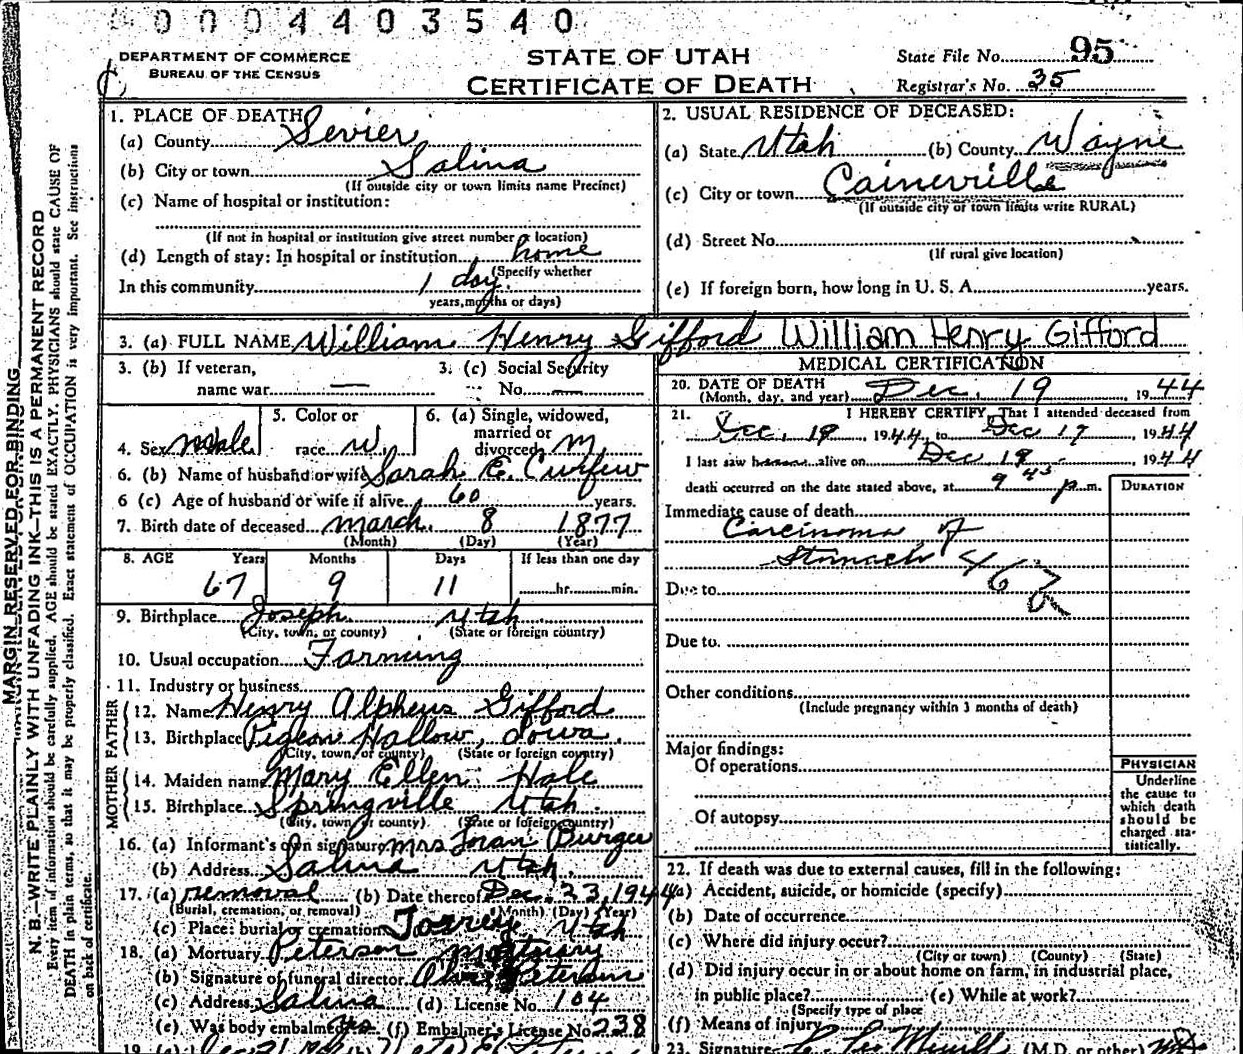 0004403540
DEPARTMENT OF COMMERCE
BUREAU OF THE CENSUS
STATE OF UTAH
CERTIFICATE OF DEATH
State File No. 95
Registrar's No. 35
1. PLACE OF DEATH
(a) County Sevier
(b) City or town Salina
(If outside city or town limits name Precinct)
(c) Name of hospital or institution:
(If not in hospital or institution give street number or location)
(d) Length of stay: In hospital or institution home
(Specify whether
In this community 1 day.
years, months or days)
2. USUAL RESIDENCE OF DECEASED:
(a) State Utah (b) County Wayne
(c) City or town Caineville
(If outside city or town limits write RURAL)
(d) Street No.
(If rural give location)
(e) If foreign born, how long in U. S. A. years.
3. (a) FULL NAME William Henry Gifford William Henry Gifford
3. (b) If veteran, name war — 3. (c) Social Security No. —
4. Sex Male 5. Color or race W 6. (a) Single, widowed, married or divorced M
6. (b) Name of husband or wife Sarah E. Curfew
6 (c) Age of husband or wife if alive 60 years.
7. Birth date of deceased March 8 1877
(Month) (Day) (Year)
8. AGE Years Months Days If less than one day
67 9 11 hr. min.
9. Birthplace Joseph Utah
(City, town, or county) (State or foreign country)
10. Usual occupation Farming
11. Industry or business
FATHER
12. Name Henry Alpheus Gifford
13. Birthplace Pigeon Hollow, Iowa.
(City, town, or county) (State or foreign country)
MOTHER
14. Maiden name Mary Ellen Hale
15. Birthplace Springville Utah.
(City, town, or county) (State or foreign country)
16. (a) Informant's own signature Mrs Loran Burgess
(b) Address Salina Utah.
17. (a) removal (b) Date thereof Dec. 23, 1944
(Burial, cremation, or removal) (Month) (Day) (Year)
(c) Place: burial or cremation Torrey, Utah
18. (a) Mortuary Peterson Mortuary
(b) Signature of funeral director Peterson
(c) Address Salina (d) License No. 104
(e) Was body embalmed yes (f) Embalmer's License No 238
MEDICAL CERTIFICATION
20. DATE OF DEATH
(Month, day, and year) Dec. 19 1944
21. I HEREBY CERTIFY, That I attended deceased from
Dec. 19, 1944, to Dec 19, 1944
I last saw h alive on Dec 19, 1944
death occurred on the date stated above, at 9 45 p.m.
DURATION
Immediate cause of death
Carcinoma of
Stomach 46b
Due to
Due to
Other conditions
(Include pregnancy within 3 months of death)
Major findings:
Of operations
Of autopsy
PHYSICIAN
Underline
the cause to
which death
should be
charged sta-
tistically.
22. If death was due to external causes, fill in the following:
(a) Accident, suicide, or homicide (specify)
(b) Date of occurrence
(c) Where did injury occur?
(City or town) (County) (State)
(d) Did injury occur in or about home on farm, in industrial place,
in public place? (e) While at work?
(Specify type of place
(f) Means of injury
23. Signature Merrill (M.D. or other) MD
MARGIN RESERVED FOR BINDING
N. B.—WRITE PLAINLY WITH UNFADING INK—THIS IS A PERMANENT RECORD
Every item of information should be carefully supplied. AGE should be stated EXACTLY. PHYSICIANS should state CAUSE OF
DEATH in plain terms, so that it may be properly classified. Exact statement of OCCUPATION is very important. See instructions
on back of certificate.